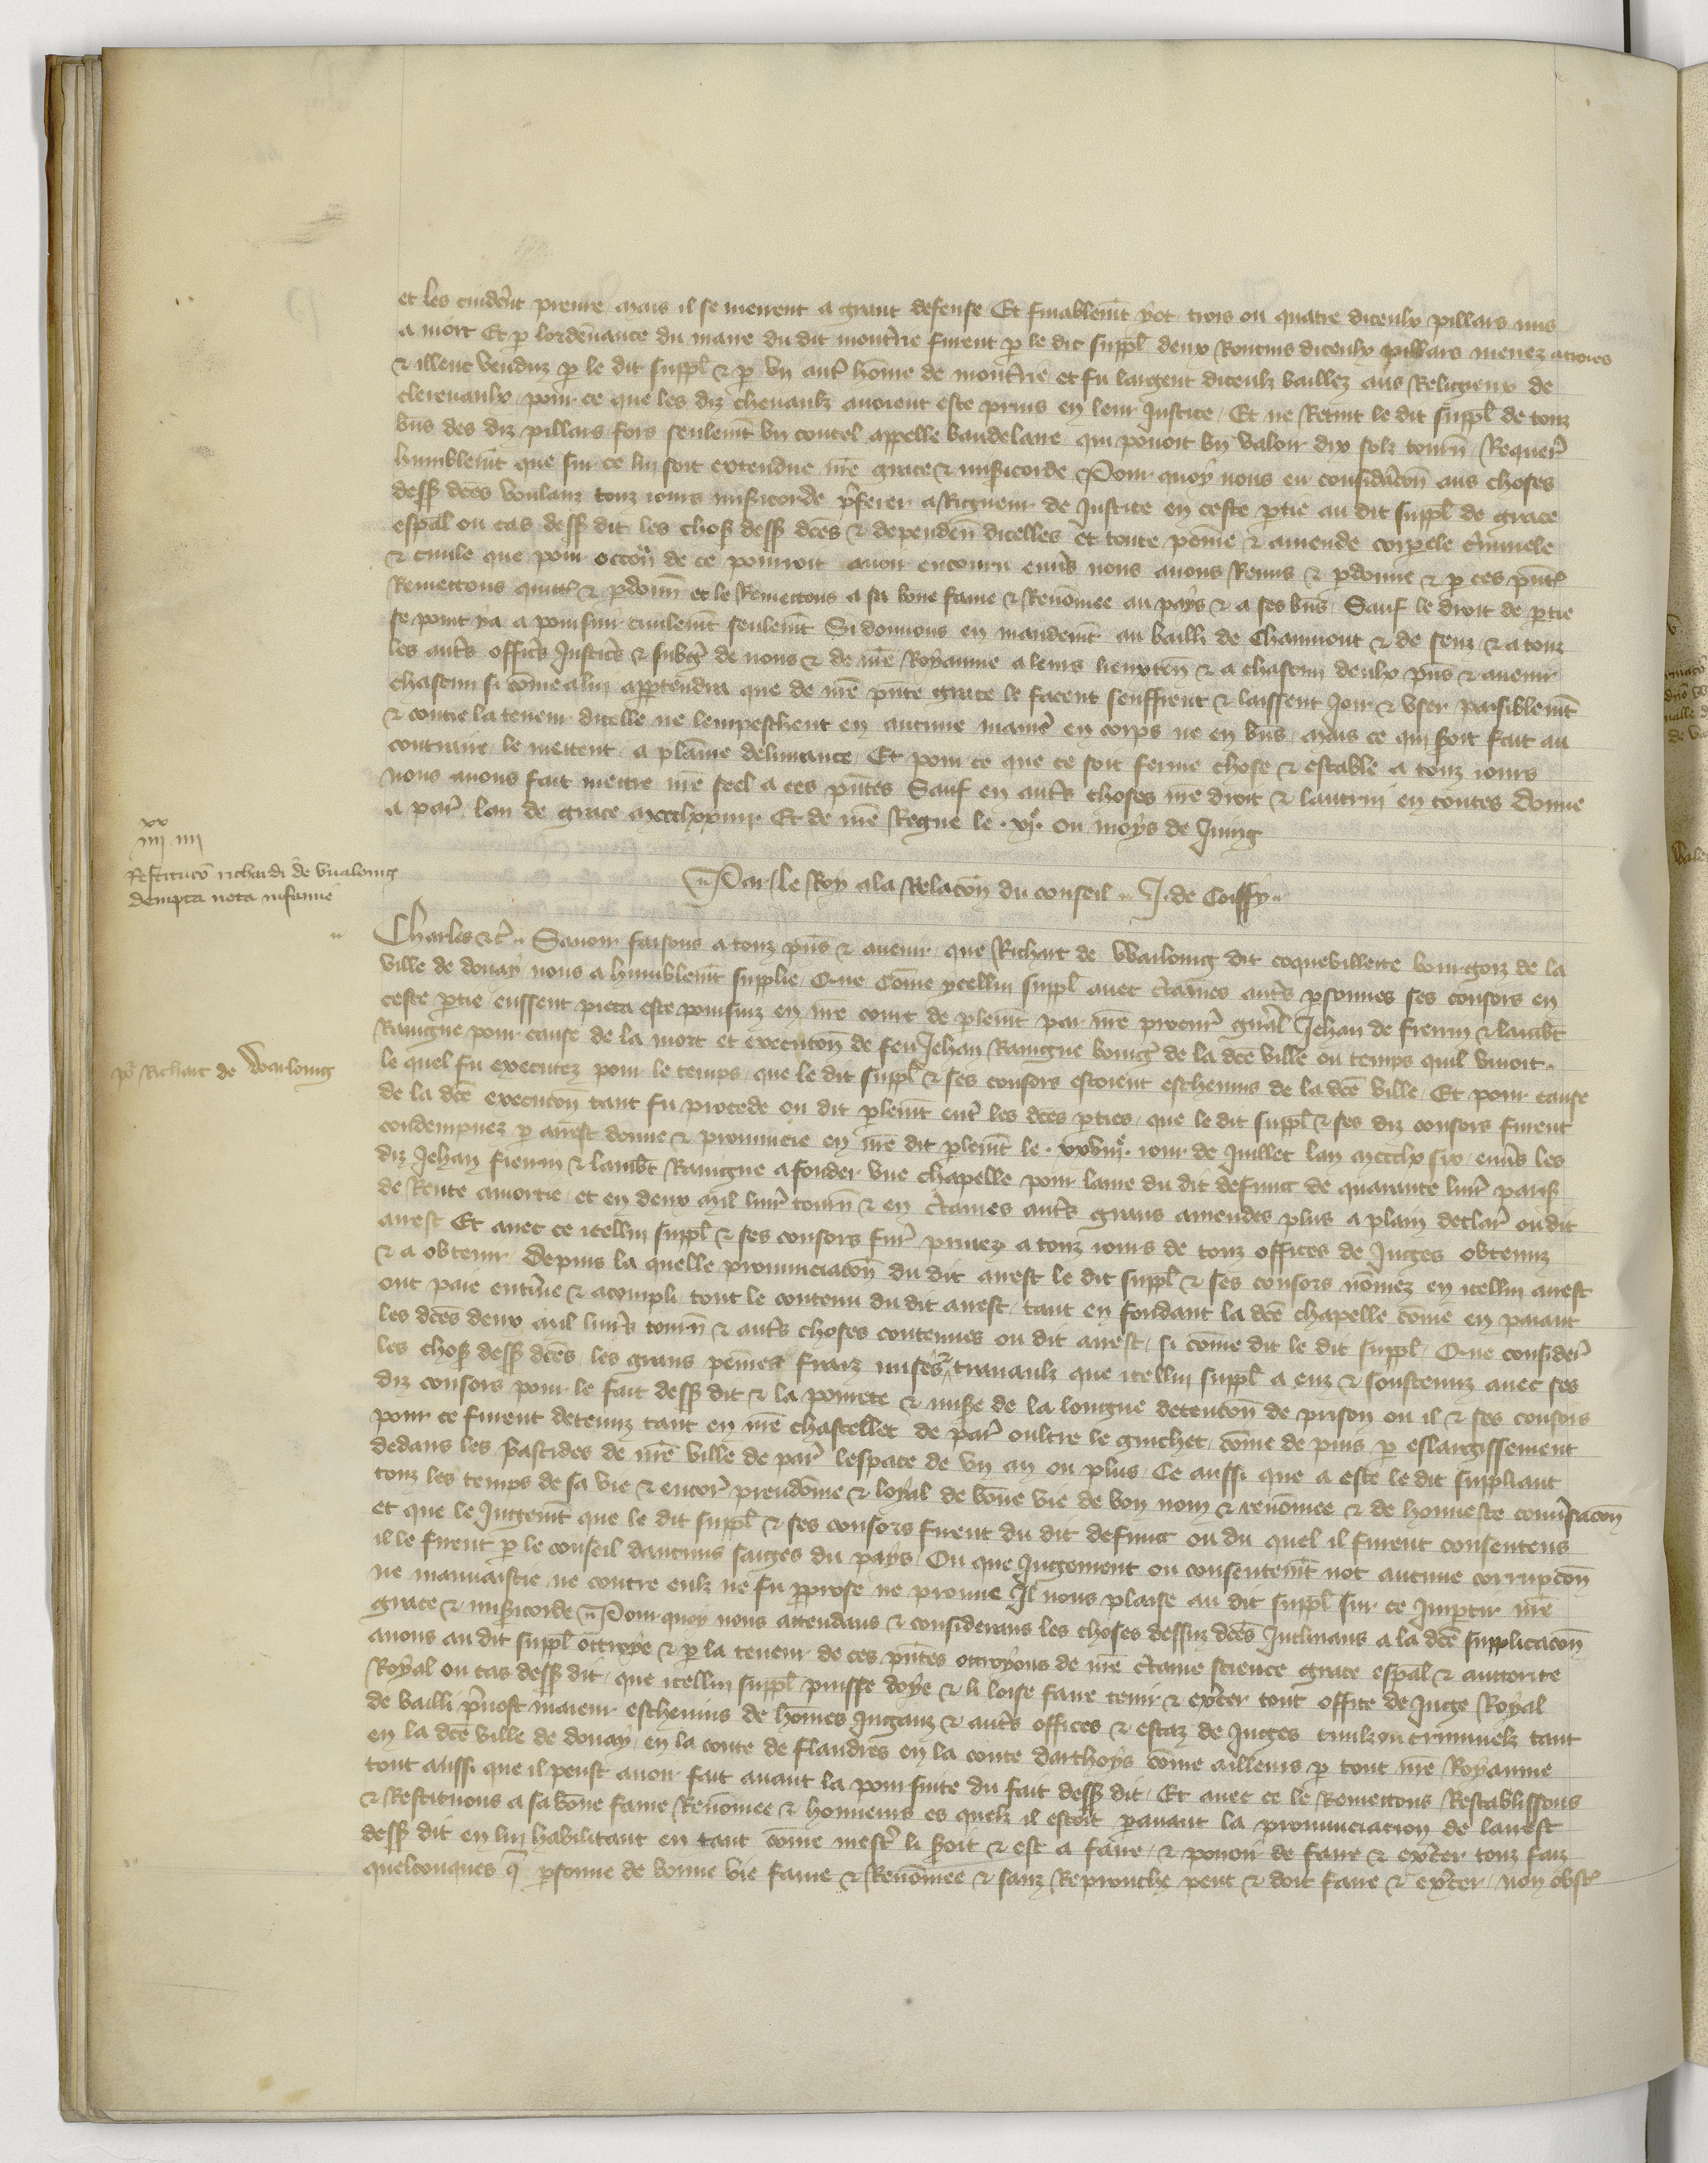 et les cuidēnt prenre mais il se meirent a grant defense Et finablemt̄ yot trois ou quatre diceulx pillars mis
a mort Et p lordenance du maire du dit furent p le dit suppl̄ deux Roncins diceulx pillars menez
& illeuc venduz p le dit suppl̄ & p vn autr̄ hōme de et fu largent diceulx baillez aus Religieux de
clerevaulx pour ce que les diz chevaulx avoient este prins en leur Justice Et ne Retint le dit suppl̄ de touz
biēs des diz pillars fors seulemt̄ vn coutel appelle baudelaire qui povoit bn̄ valoir dix solz tourn̄ Requer̄
humblemt̄ que sur ce lui soit extendue nr̄e grace & misericorde Pour quoy nous en considāco͞n aus choses
dess dc̄es voulanz touz iours misericorde p̄ferer a Rigueur de Justice en ceste ptie au dit suppl̄ de grace
esp̄al ou cas dess dit les choses dess dc̄es & dependen̄ dicelles et toute peine & amende corporele c̄minele
& civile que pour occōn de ce pourroit avoir encouru envr̄s nous avons Remis & pdonne & p ces pn̄t
Remettons quitt & pdonn̄ et le Remettons a sa bone fame & Renōmee au pays & a ses biēs Sauf le droit de ptie
se point y a a poursuir civilemt̄ seulemt̄ Si donnons en mandemt̄ au bailli de Chaumont & de senz & a touz
les autr̄s offic̄rs Justic̄rs & subgz de nous & de nr̄e Royaume a leurs lieuxten̄ & a chascun deulx pn̄s & avenir
chascun si cōme a lui apptendra que de nr̄e pn̄te grace le facent seuffrent & laissent Joir & vser paisiblemt̄
& contre la teneur dicelle ne lempeschent en aucune manier̄ en corps ne en biēs mais ce qui soit fait au
contraire le mettent a plaine delivrance Et pour ce que ce soit ferme chose & estable a touz iours
nous avons fait mettre nr̄e seel a ces pn̄tes Sauf en autr̄s choses nr̄e droit & lautrui en toutes Donne
a par̄ lan de grace mccclxxiiii Et de nr̄e Regne le .xi. ou moys de Juing
Par le Roy a la Relacōn du conseil J. de Coiffy
xx
iiii iiii
Restitucō richardi de Wualonig
dempta nota infamie
Charles &c̄ Savoir faisons a touz pn̄s & avenir que Richart de Warlonig dit coquebillette bourgoiz de la
ville de douay nous a humblemt̄ supplie Que Cōme ycellui suppl̄ avec c̄taines autr̄s psonnes ses consors en
ceste ptie eussent pieca este poursuiz en nr̄e court de plemt̄ par nr̄e procur̄ gn̄ral Jehan de frerin & lambt̄
Ravigne pour cause de la mort et execucōn de feu Jehan Ravigne bourgz de la dc̄e ville ou temps quil vivoit
pr̄ Richart de Warlonig
le quel fu executez pour le temps que le dit suppl̄ & ses consors estoient eschevins de la dc̄e ville Et pour cause
de la dc̄e execucōn tant fu procede ou dit plemt̄ entr̄ les dc̄es pties que le dit suppl̄ & ses diz consors furent
condempnez p arrest donne & prononcie en nr̄e dit plemt̄ le .xxviii. iour de Juillet lan mccclx six envr̄s les
diz Jehan frerin & lambt̄ Ravigne a fonder vne chapelle pour lame du dit defunct de quarante livr̄ paris
de Rente amortie et en deux mil livr̄ tourn̄ & en c̄taines autr̄s grans amendes plus a plain declar̄ ou dit
arrest Et avec ce icellui suppl̄ & ses consors fur̄ privez a touz iours de touz offices de Juges obtenuz
& a obtenir Depuis la quelle pronunciacōn du dit arrest le dit suppl̄ & ses consors nōmez en icellui arrest
ont paie entr̄ine & acompli tout le contenu du dit arrest tant en fondant la dc̄e chapelle cōme en paiant
les dc̄es deux mil livr̄s tourn̄ & autr̄s choses contenues ou dit arrest si cōme dit le dit suppl̄ Que consider̄
les choses dess dc̄es les grans peines fraiz mises & travaulx que icellui suppl̄ a euz & soustenuz avec ses
diz consors pour le fait dess dit & la povrete & mise de la longue detencōn de prison ou il & ses consors
pour ce furent detenuz tant en nr̄e chastellet de par̄ oultre le guichet cōme depuis p eslargissement
dedans les bastides de nr̄e ville de par̄ lespace de vn an ou plus Ce aussi que a este le dit suppliant
touz les temps de sa vie & encor̄ preudōme & loyal de bōne vie de bon nom & renōmee & de honneste conv̄sacōn
et que le Jugemt̄ que le dit suppl̄ & ses consors firent du dit defunct ou du quel il furent consentens
il le firent p le conseil daucuns saiges du pays Ou que Jugement ou consentemt̄ not aucune corrupcōn
ne mauvaistie ne contre eulx ne fu ppose ne prouve Il nous plaise au dit suppl̄ sur ce Impartir nr̄e
grace & misericorde Pour quoy nous attendans & considerans les choses dessus dc̄es Inclinans a la dc̄e supplicacōn
avons au dit suppl̄ ottroye & p la teneur de ces pn̄tes ottroyons de nr̄e c̄taine science grace esp̄al & auctorite
Royal ou cas dess dit que icellui suppl̄ puisse doye & li loise faire tenir & exc̄er tout office de Juge Royal
de bailli p̄vost maieur eschevins de hōmes Juganz & autr̄s offices & estaz de Juges civilz ou criminelz tant
en la dc̄e ville de douay en la conte de flandres en la conte darthoys cōme ailleurs p tout nr̄e Royaume
tout aussi que il peust avoir fait avant la poursuite du fait dess dit Et avec ce le Remettons Restablissons
& Restituons a sa bōne fame Renōmee & honneurs es quelx il estoit pavant la pronunciacion de larrest
dess dit en lui habilitant en tant cōme mestr̄ li soit & est a faire & povoir de faire & exc̄er touz faiz
quelconques q̄ psonne de bonne vie fame & Renōmee & sanz Reprouche peut & doit faire & exc̄er non obst